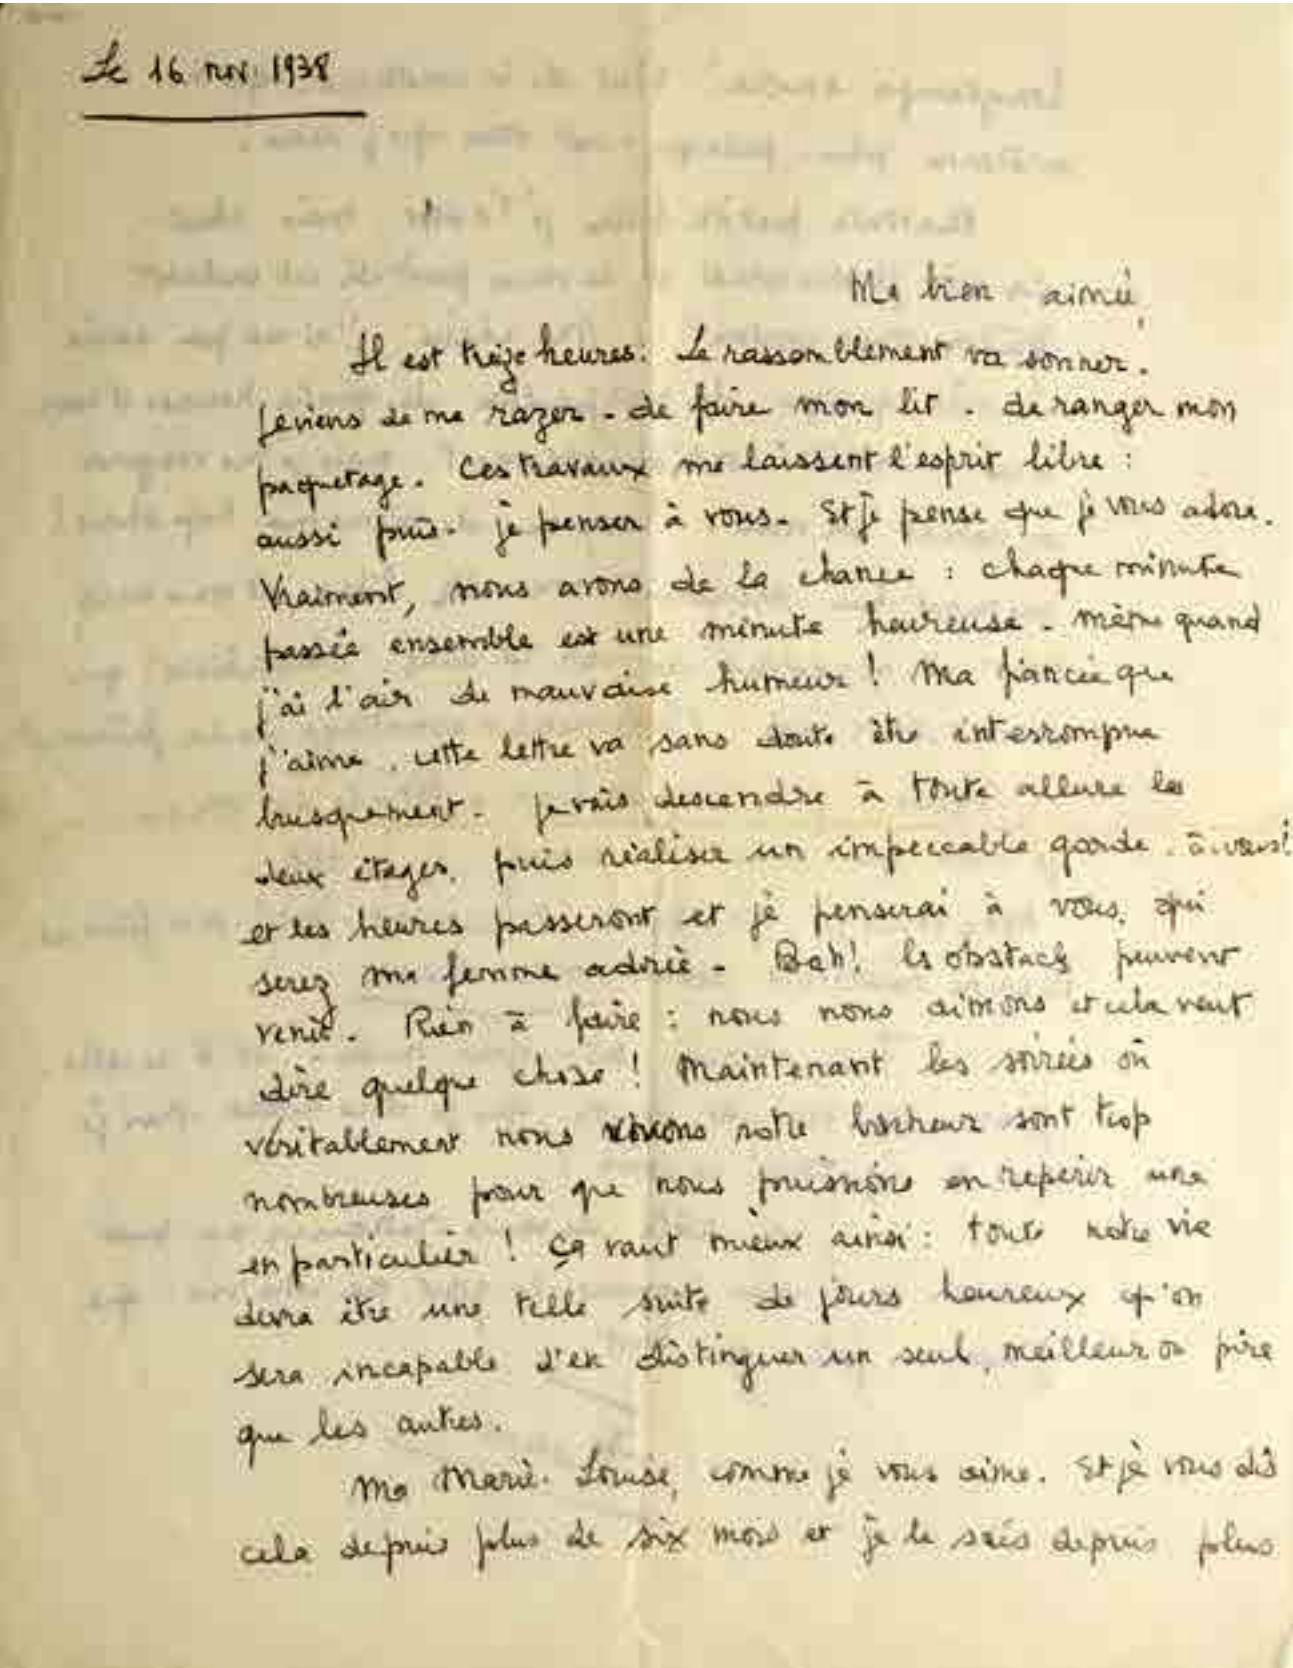 Le 16 nov. 1938
Ma bien aimée,
Il est treize heures. Le rassemblement va sonner.
Je viens de me razer - de faire mon lit - de ranger mon
paquetage. Ces travaux me laissent l'esprit libre :
aussi puis-je penser à vous. Et je pense que je vous adore.
Vraiment, nous avons de la chance : chaque minute
passée ensemble est une minute heureuse - même quand
j'ai l'air de mauvaise humeur ! Ma fiancée que
j'aime, cette lettre va sans doute être interrompue
brusquement. Je vais descendre à toute allure les
deux étages, puis réaliser un impeccable garde-à-vous !
et les heures passeront et je penserai à vous, qui
serez ma femme adorée - Bah ! les obstacles peuvent
venir. Rien à faire : nous nous aimons et cela veut
dire quelque chose ! Maintenant les soirées où
véritablement nous vivons notre bonheur sont trop
nombreuses pour que nous puissions en repérer une
en particulier ! Ça vaut mieux ainsi : toute notre vie
devra être une telle suite de jours heureux qu'on
sera incapable d'en distinguer un seul, meilleur ou pire
que les autres.
Ma Marie-Louise, comme je vous aime. Et je vous dis
cela depuis plus de six mois et je le sais depuis plus